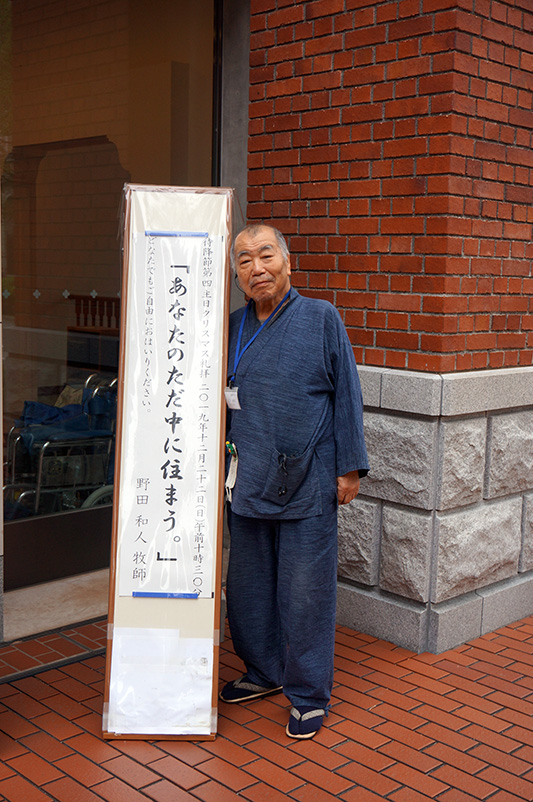 待降節第四主日クリスマス礼拝 二〇一九年十二月二十二日(日)午前十時三〇分
「あなたのただ中に住まう。」
野田 和人 牧師
どなたでもご自由におはいりください。